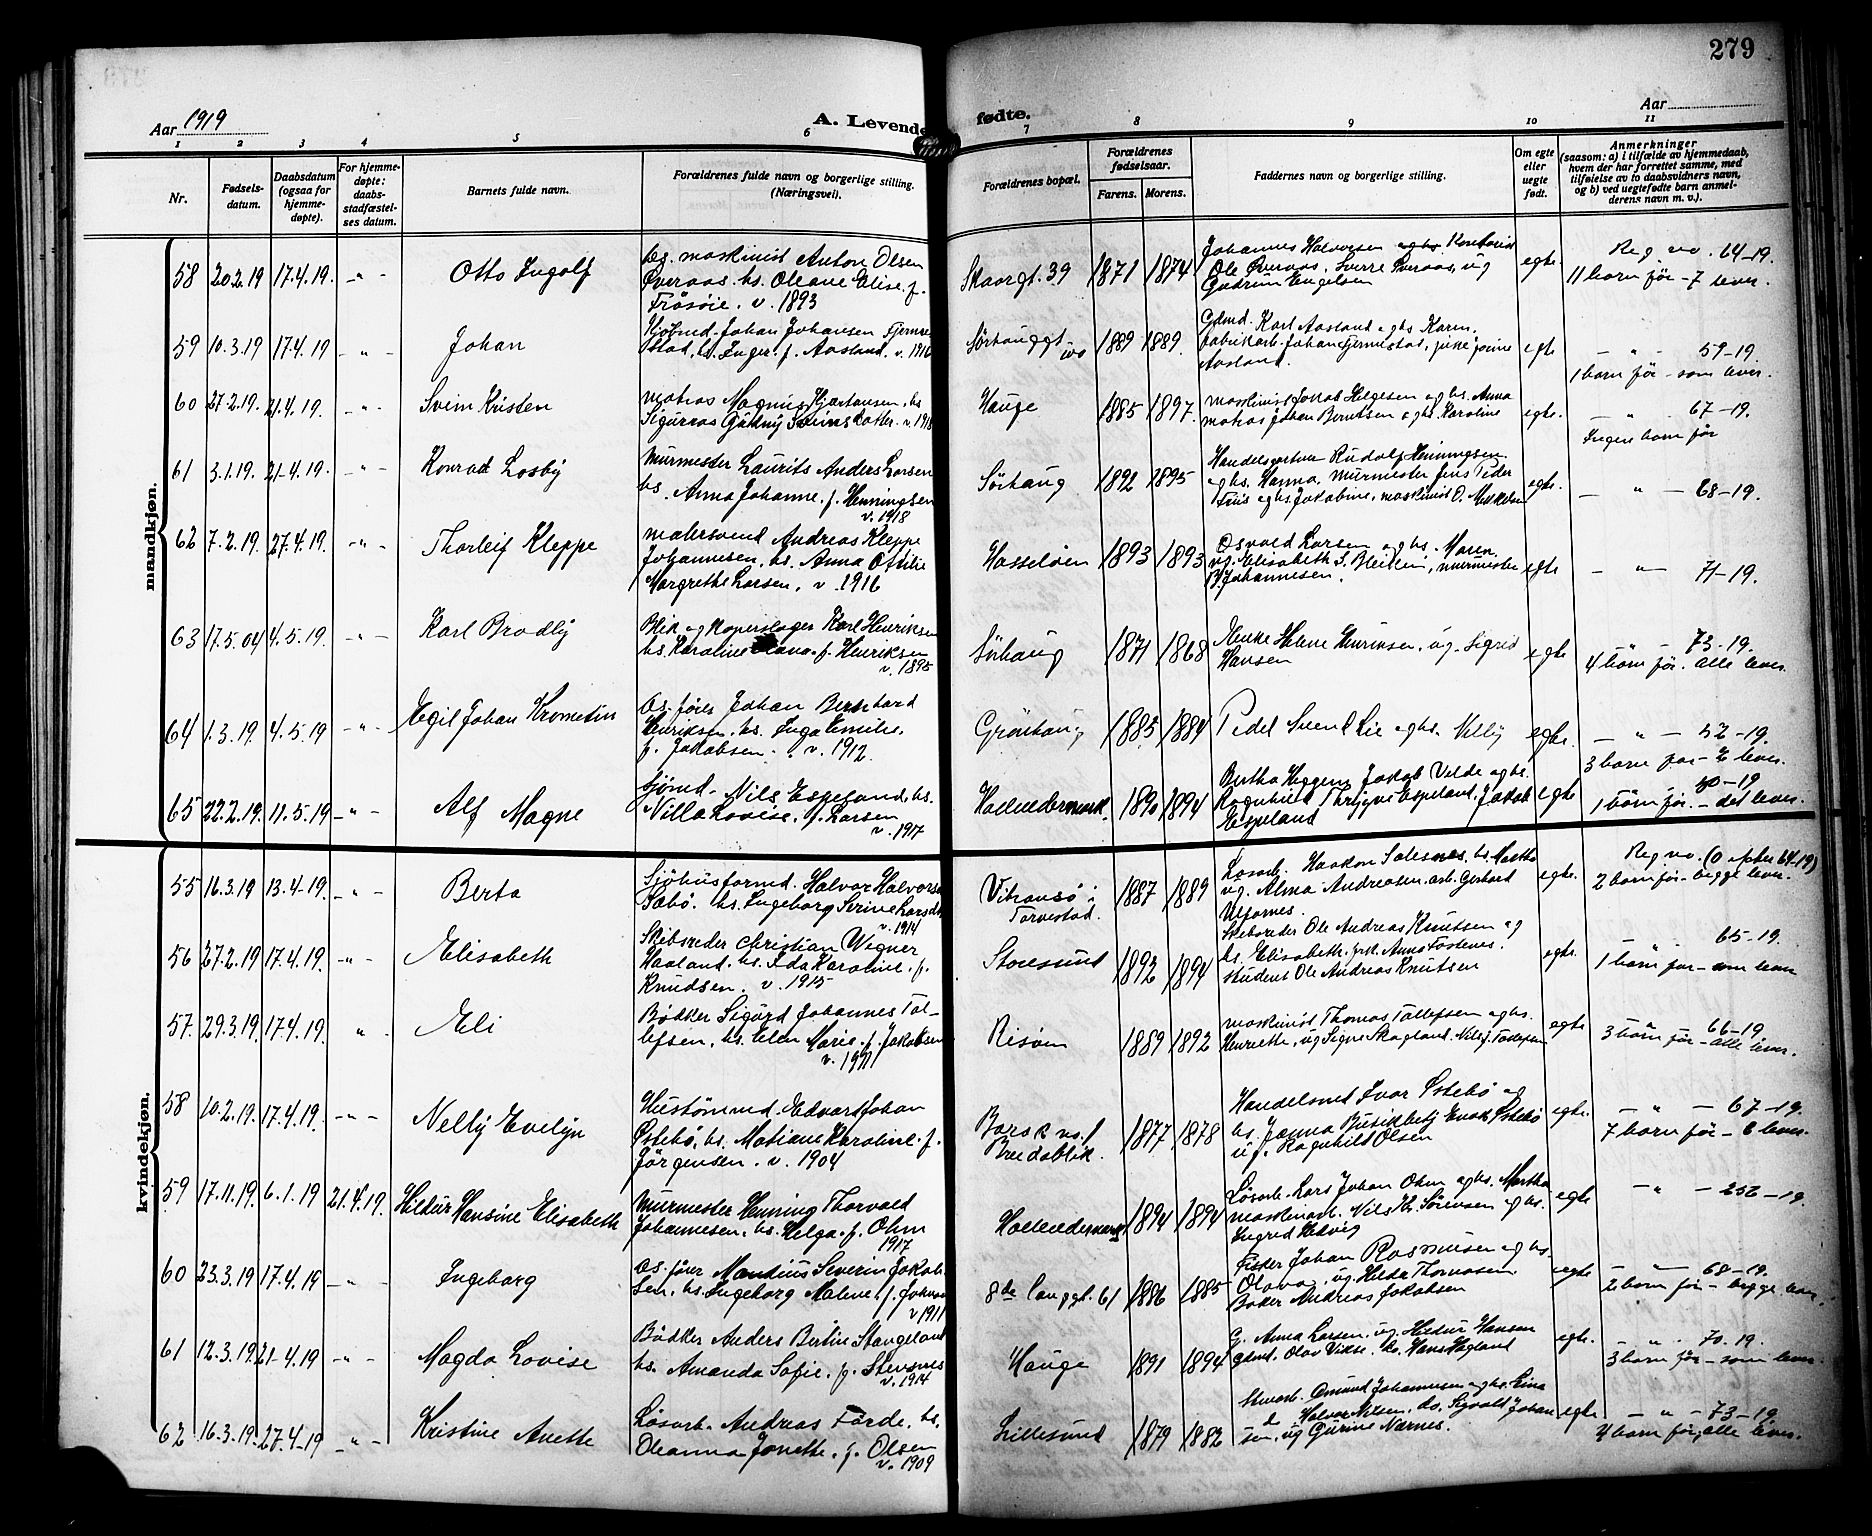 279
Aar 1919
A. Levende fødte.
Aar
1 2 3 4 5 6 7 8 9 10 11
Nr.
Fødsels-
datum.
Daabsdatum
(ogsaa for
hjemme-
døpte).
For hjemme-
døpte:
daabs-
stadfæstel-
ses datum.
Barnets fulde navn.
Forældrenes fulde navn og borgerlige stilling.
(Næringsvei).
Forældrenes bopæl.
Forældrenes
fødselsaar.
Farens. Morens.
Faddernes navn og borgerlige stilling.
Om egte
eller
uegte
født.
Anmerkninger
(saasom: a) i tilfælde av hjemmedaab,
hvem der har forrettet samme, med
tilføielse av to daabsvidners navn,
og b) ved uegtefødte barn anmel-
derens navn m. v.).
mandkjøn.
58 20.2.19 17.4.19. -"- Otto Ingolf
maskinist Anton Olsen
Øveraas. hs. Oleane Elise. f.
v. 1893
Skaaregt. 39 1871 1874
Johannes Halvorsen
Ole Øveraas, Sverre Øveraas, ug
Gudrun Engelsen
egte.
Reg. no. 64-19.
11 barn før - 7 lever.
59 10.3.19 17.4.19 -"- Johan
Johan Johansen
hs. Inger. f. Aasland. v. 1916
1889 1889.
Gdmd. Karl Aasland og hs Karen,
Aasland.
egte
-"- 59-19.
1 barn før - som lever.
60 27.2.19. 21.4.19. -"- Svein Kristen
matros Magnus Kjartansen, hs
v. 1918
Hauge 1885 1897.
maskinist Jakob Helgesen og hs. Anna
matros Johan Berntsen og hs. Karoline
egte.
-"- 67-19.
Ingen barn før
61 3.1.19. 21.4.19. -"- Konrad Losby
Murmester Laurits Anders Larsen
hs. Anna Johanne. f. Henningsen
v. 1918
Sørhaug 1892 1895
Rudolf Henningsen
og hs. Hanna, Murmester Jens Peder
Friis og hs. Jakobine, maskinist O. Mikkelsen
egte.
-"- 68-19.
62 7.2.19. 27.4.19. -"- Thorleif Kleppe
malersvend Andreas Kleppe
Johannesen, hs. Anna Ottilie
Margrethe Larsen. v. 1916
Hasseløen 1893 1893
Osvald Larsen og hs. Maren.
ug. Elisabeth S. murmester
Johannesen.
egte
-"- 71-19.
63 17.5.04 4.5.19. -"- Karl Brodly
Blik og Koperslager Karl Henriksen
hs. Karoline f. Henriksen
v. 1895
Sørhaug 1871 1868
Enke Helene Henriksen, ug. Sigrid
Hansen
egte
73-19.
4 barn før. alle lever.
64 1.3.19. 4.5.19 -"- Egil Johan
fører Johan Bernhard
Henriksen. hs. Inga Emilie.
f. Jakobsen. v. 1912.
Grønhaug 1885 1884
Pedel Svend Lie og hs. Villy
egte.
-"- 52-19.
3 barn før - 2 lever.
65 22.2.19. 11.5.19 -"- Alf Magne
Sjømd. Nils Espeland, hs.
Villa Lovise, f. Larsen
v. 1917
1890 1894
Jakob Velde og hs.
Espeland, Jakob
Espeland
egte
-19
1 barn før. - det lever.
kvindekjøn.
55 16.3.19 13.4.19 -"- Berta
Sjøhusformd. Halvor Halvorsen
Sæbø. hs. Ingeborg Serine Larsdtr
v. 1914
Vibransø i
Torvestad.
1887 1889
Løsarb. Haakon hs. Martha
ug. Alma Andreasen, arb. Gerhard
egte.
Reg. no. (0 efter 64-19)
2 barn før - begge lever.
56 27.2.19 17.4.19. -"- Elisabeth
Skibsreder Christian Wegner
Haaland. hs. Ida Karoline. f.
Knudsen. v. 1915
Storesund 1892 1894
Skibsreder Ole Andreas Knutsen og
hs. Elisabeth. frk. Anna
student Ole Andreas Knutsen
egte.
-"- 65-19.
1 barn før - som lever
57. 29.3.19 17.4.19. " - Eli
Bødker Sigurd Johannes Tol-
lefsen, hs. Elen Marie. f. Jakobsen
v. 1911
Risøen 1889 1892
maskinist Thomas Tollefsen og hs.
Henriette, ug Signe Skogland. Nils J. Tollefsen
egte
66-19.
3 barn før - alle lever.
58 10.2.19. 17.4.19. -"- Nelly Evelyn
Edvard Johan
Østebø, hs. Matiane Karoline. f.
Jørgensen. v. 1904
Breidablik.
1877 1878
Handelsmd Ivar Østebø og
hs. Janna Østebø
ug. Ragnhild Olsen
egte.
-"- 67-19.
7 barn før - 6 lever.
59 17.11.19. 6.1.19 21.4.19. Hildur Hansine Elisabeth
Murmester Henning Thorvald
Johannesen, hs. Helga. f. Ohm
1917
1894 1894
Løsarb. Lars Johan Ohm og hs. Martha
maskinarb. Nils Kr. Sørensen og hs.
Ingrid Hedvig
egte
-"- 252-19.
60 23.3.19 17.4.19 -"- Ingeborg
fører Mandius Severin Jakob-
sen, hs. Ingeborg Malene. f. Johnsen
v 1911
8de Langgt. 61 1886 1885
Fisker Johan Rasmussen og hs.
Olava, ug. Hilda Thomasen
Baker Andreas Jakobsen
egte
-"- 68-19.
2 barn før - begge lever.
61 12.3.19. 21.4.19 -"- Magda Lovise
Bødker Anders Bertin Stangeland
hs. Amanda Sofie. f. Stensnes
v. 1914
Hauge 1891 1894
G. Anna Larsen, ug. Hildur Hansen
gdmd. Olav Vikse, do. Hans Hagland
egte.
-"- 70.19.
3 barn før - som lever.
62 16.3.19. 27.4.19 -"- Kristine Anette
Løsarb. Andreas Førde. hs.
Oleanna Jonette. f. Olsen
v. 1909
Lillesund 1879 1882
Omund Johannesen og hs. Lina
do Halvor Nilsen, do. Sigvald Johan
sen, ug Gurine Nærnes.
egte
-"- 73-19
4 barn før, alle lever.